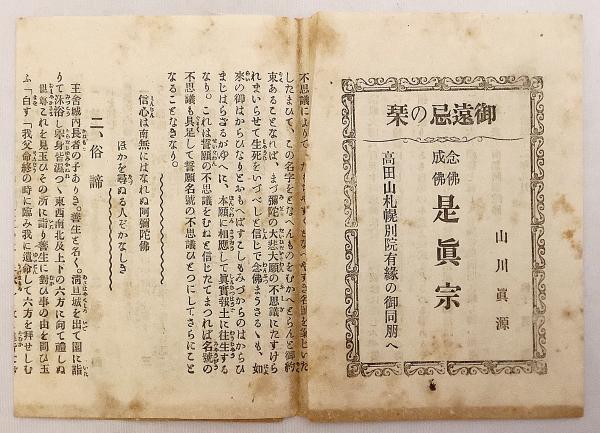 御遠忌の栞
念佛
成佛
是眞宗
高田山札幌別院有縁の御同朋へ
山川眞源
不思議によりて、たもちやすく、となへやすき名號を案じいだ
したまひて、この名字をとなへんものをむかへとらんと御約
束あることなれば、まづ彌陀の大悲大願の不思議にたすけら
れまいらせて生死をいづべしと信じて念佛まうさるゝも、如
來の御はからひなりとおもへばすこしもみづからのはからひ
まじはらざるがゆへに、本願に相應して眞實報土に往生する
なり。これは誓願の不思議をむねと信じたてまつれば名號の
不思議も具足して誓願名號の不思議ひとつにしてさらにこと
なることなきなり。
信心は南無にはなれぬ阿彌陀佛
ほかを尋ぬる人ぞかなしき
二、俗諦
王舍城内長者の子ありき。善生と名く。清旦城を出て園に詣
りて沐浴し擧身皆濕つゝ東西南北及上下の六方に向て禮しぬ
世尊これを見玉ひその所に詣り善生に對ひ事の由を問ひ玉
ふ「白す」我父命終の時に臨み我に遺命して六方を拜せしむ